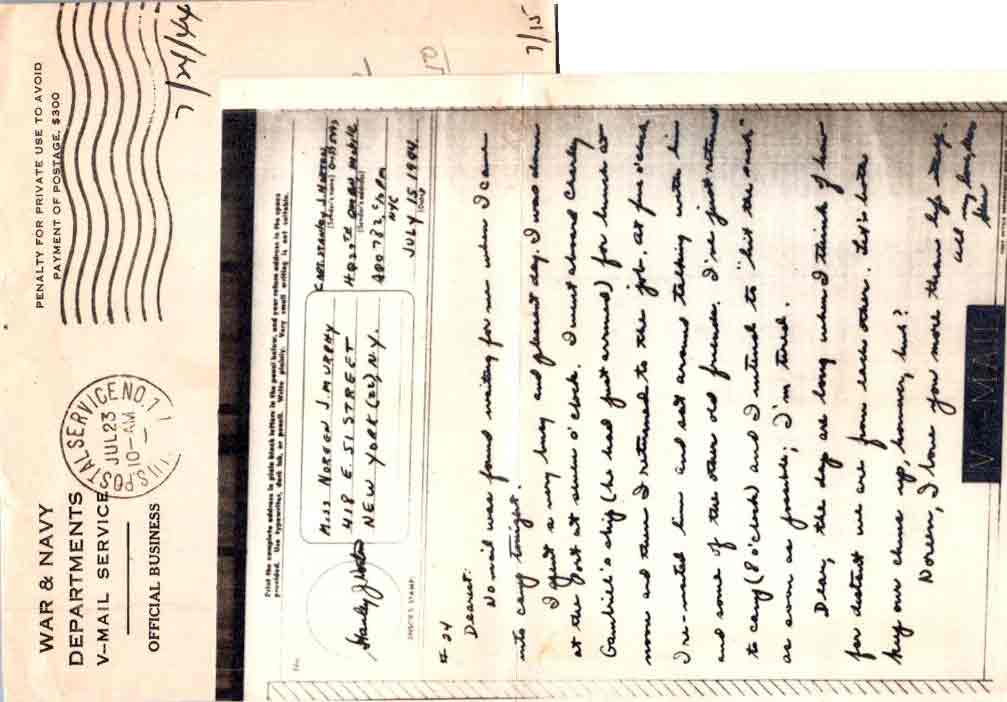 WAR & NAVY
DEPARTMENTS
V-MAIL SERVICE
OFFICIAL BUSINESS
U.S. POSTAL SERVICE NO. 1
JUL 23
10-AM
PENALTY FOR PRIVATE USE TO AVOID
PAYMENT OF POSTAGE, $300
7/24/44
7/15
Print the complete address in plain block letters in the panel below, and your return address in the space
provided. Use typewriter, dark ink, or pencil. Write plainly. Very small writing is not suitable.
No.
MISS NOREEN J. MURPHY
418 E 51 STREET
NEW YORK (22), N.Y.
(Sender's name)
(Sender's address)
APO 782 C/O PM
NYC
JULY 15 1944
(Date)
CENSOR'S STAMP
# 24
Dearest:
No mail was found waiting for me when I came
into camp tonight.
I spent a very busy and pleasant day. I was down
at the port at seven o'clock. I went aboard Charley
Gabriel's ship (he had just arrived) for lunch at
noon and then I returned to the job. At five o'clock
I re-visited him and sat around talking with him
and some of the other old friends. I've just returned
to camp (8 o'clock) and I intend to "hit the sack"
as soon as possible; I'm tired.
Dear, the days are long when I think of how
far distant we are from each other. Let's both
keep our chins up, hommy, huh?
Noreen, I love you more than life itself.
All my love,
V-MAIL